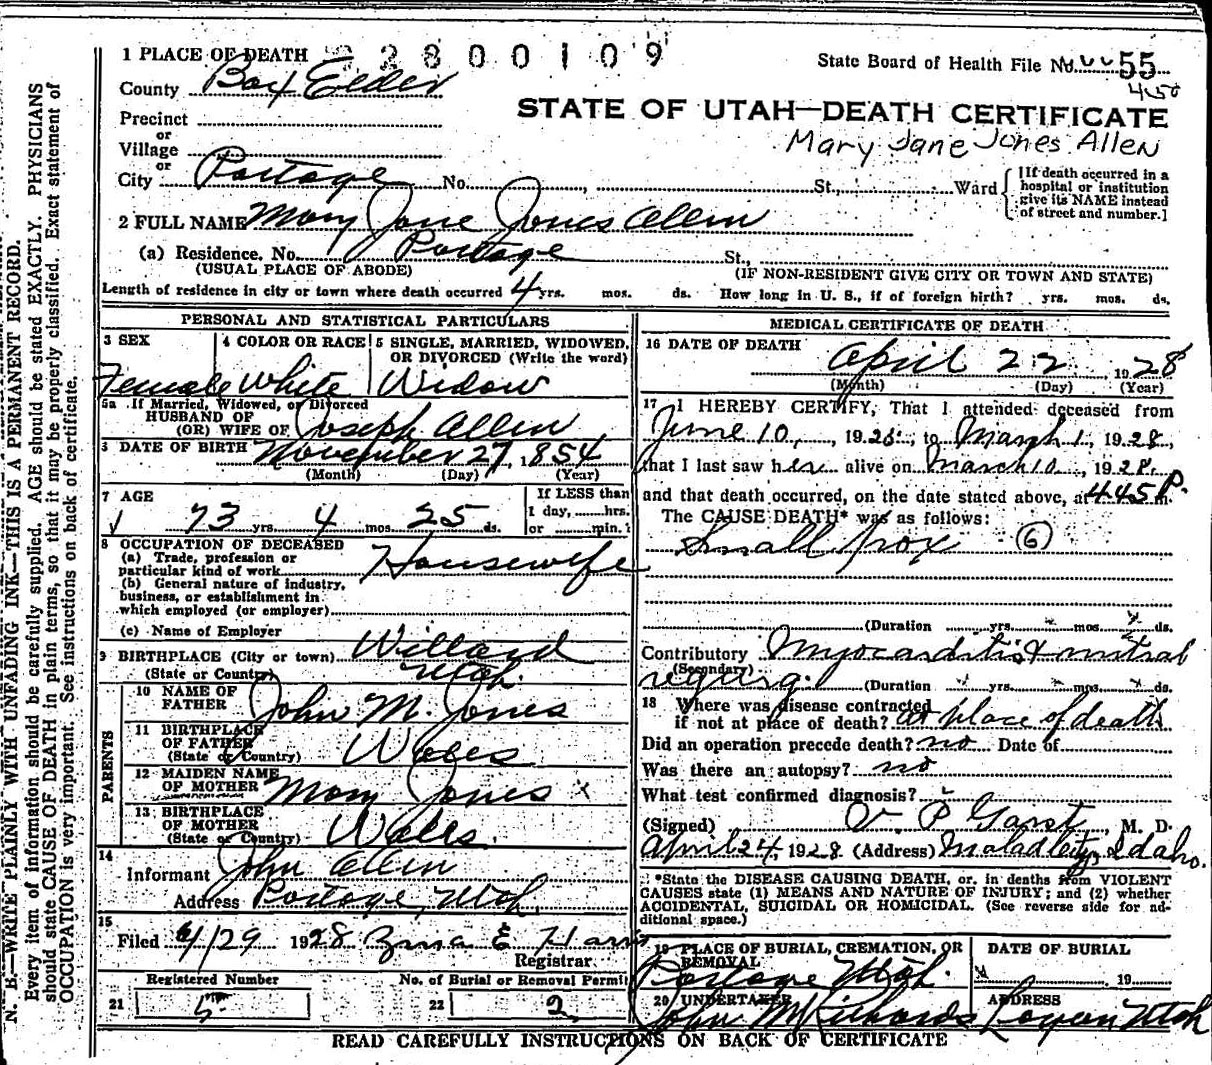 1 PLACE OF DEATH 2800109
State Board of Health File No. 55
County Box Elder
450
STATE OF UTAH—DEATH CERTIFICATE
Precinct
or
Mary Jane Jones Allen
Village
or
City Portage No. , St., Ward
[If death occurred in a
hospital or institution
give its NAME instead
of street and number.]
2 FULL NAME Mary Jane Jones Allen
(a) Residence. No. Portage St.,
(USUAL PLACE OF ABODE) (IF NON-RESIDENT GIVE CITY OR TOWN AND STATE)
Length of residence in city or town where death occurred 4 yrs. mos. ds. How long in U. S., if of foreign birth? yrs. mos. ds.
PERSONAL AND STATISTICAL PARTICULARS
3 SEX
Female
4 COLOR OR RACE
White
5 SINGLE, MARRIED, WIDOWED,
OR DIVORCED (Write the word)
Widow
5a If Married, Widowed, or Divorced
HUSBAND OF
(OR) WIFE OF Joseph Allen
DATE OF BIRTH November 27, 1854
(Month) (Day) (Year)
7 AGE
73 yrs. 4 mos. 25 ds.
If LESS than
1 day, hrs.
or min.
8 OCCUPATION OF DECEASED
(a) Trade, profession or
particular kind of work Housewife
(b) General nature of industry,
business, or establishment in
which employed (or employer)
(c) Name of Employer
9 BIRTHPLACE (City or town) Willard
(State or Country) Utah.
PARENTS
10 NAME OF
FATHER John M. Jones
11 BIRTHPLACE
OF FATHER
(State or Country) Wales
12 MAIDEN NAME
OF MOTHER Mary Jones
13 BIRTHPLACE
OF MOTHER
(State or Country) Wales.
14
Informant John Allen
Address Portage, Utah.
15
Filed 4/29 1928 Zina E Harris
Registrar
Registered Number
21 5
No. of Burial or Removal Permit
22 2
MEDICAL CERTIFICATE OF DEATH
16 DATE OF DEATH
April 22 1928
(Month) (Day) (Year)
17 I HEREBY CERTIFY, That I attended deceased from
June 10, , 1925, to March 1, 1928,
that I last saw her alive on March 10 , 1928.
and that death occurred, on the date stated above, at 4 45 P. m.
The CAUSE DEATH* was as follows:
Small pox (6)
(Duration yrs. mos. ds.
Contributory Myocarditis & mitral
(Secondary)
regurg. (Duration yrs. mos. ds.
18 Where was disease contracted
if not at place of death? at place of death
Did an operation precede death? no Date of
Was there an autopsy? no
What test confirmed diagnosis?
(Signed) P Garst, M. D.
April 24, 1928 (Address) Malad City, Idaho.
*State the DISEASE CAUSING DEATH, or, in deaths from VIOLENT
CAUSES state (1) MEANS AND NATURE OF INJURY; and (2) whether
ACCIDENTAL, SUICIDAL OR HOMICIDAL. (See reverse side for ad-
ditional space.)
19 PLACE OF BURIAL, CREMATION, OR
REMOVAL
Portage Utah.
DATE OF BURIAL
19
20 UNDERTAKER
John M Richards
ADDRESS
Logan Utah
READ CAREFULLY INSTRUCTIONS ON BACK OF CERTIFICATE
N. B.—WRITE PLAINLY WITH UNFADING INK—THIS IS A PERMANENT RECORD.
Every item of information should be carefully supplied. AGE should be stated EXACTLY. PHYSICIANS
should state CAUSE OF DEATH in plain terms, so that it may be properly classified. Exact statement of
OCCUPATION is very important. See instructions on back of certificate.